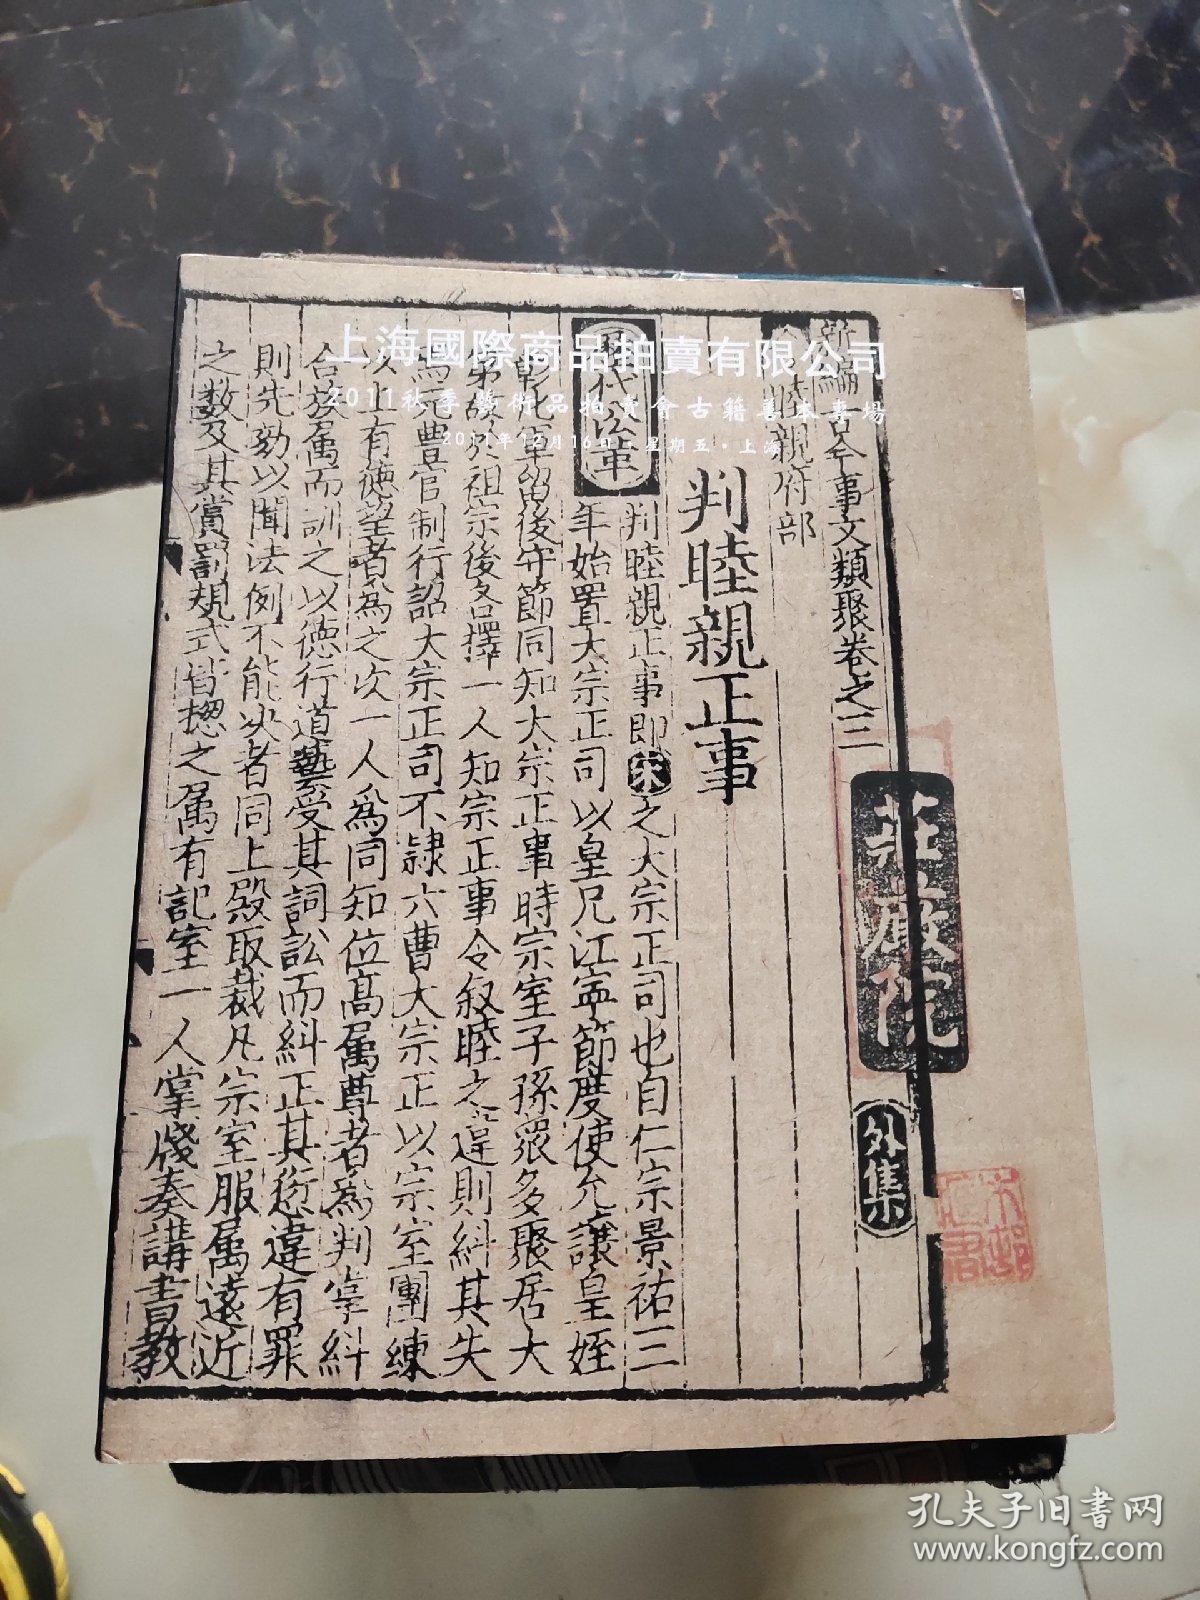 上海國際商品拍賣有限公司
2011秋季藝術品拍賣會古籍善本專場
2011年12月16日·星期五·上海
新編古今事文類聚卷之三
睦親府部
判睦親正事
歷代沿革
判睦親正事即宋之大宗正司也自仁宗景祐三
年始置大宗正司以皇兄江寧節度使允讓皇姪
彰化軍留後守節同知大宗正事時宗室子孫衆多聚居大
第故於祖宗後各擇一人知宗正事令敘睦之違則糾其失
爲元豊官制行詔大宗正司不隷六曹大宗正以宗室團練
以上有德望者爲之次一人爲同知位高属尊者爲判掌糾
合族属而訓之以德行道藝受其詞訟而糾正其愆違有罪
則先劾以聞法例不能决者同上殿取裁凡宗室服属遠近
之数及其賞罰規式皆揔之属有記室一人掌牋奏講書教
莊嚴院
外集
孔夫子旧书网
www.kongfz.com